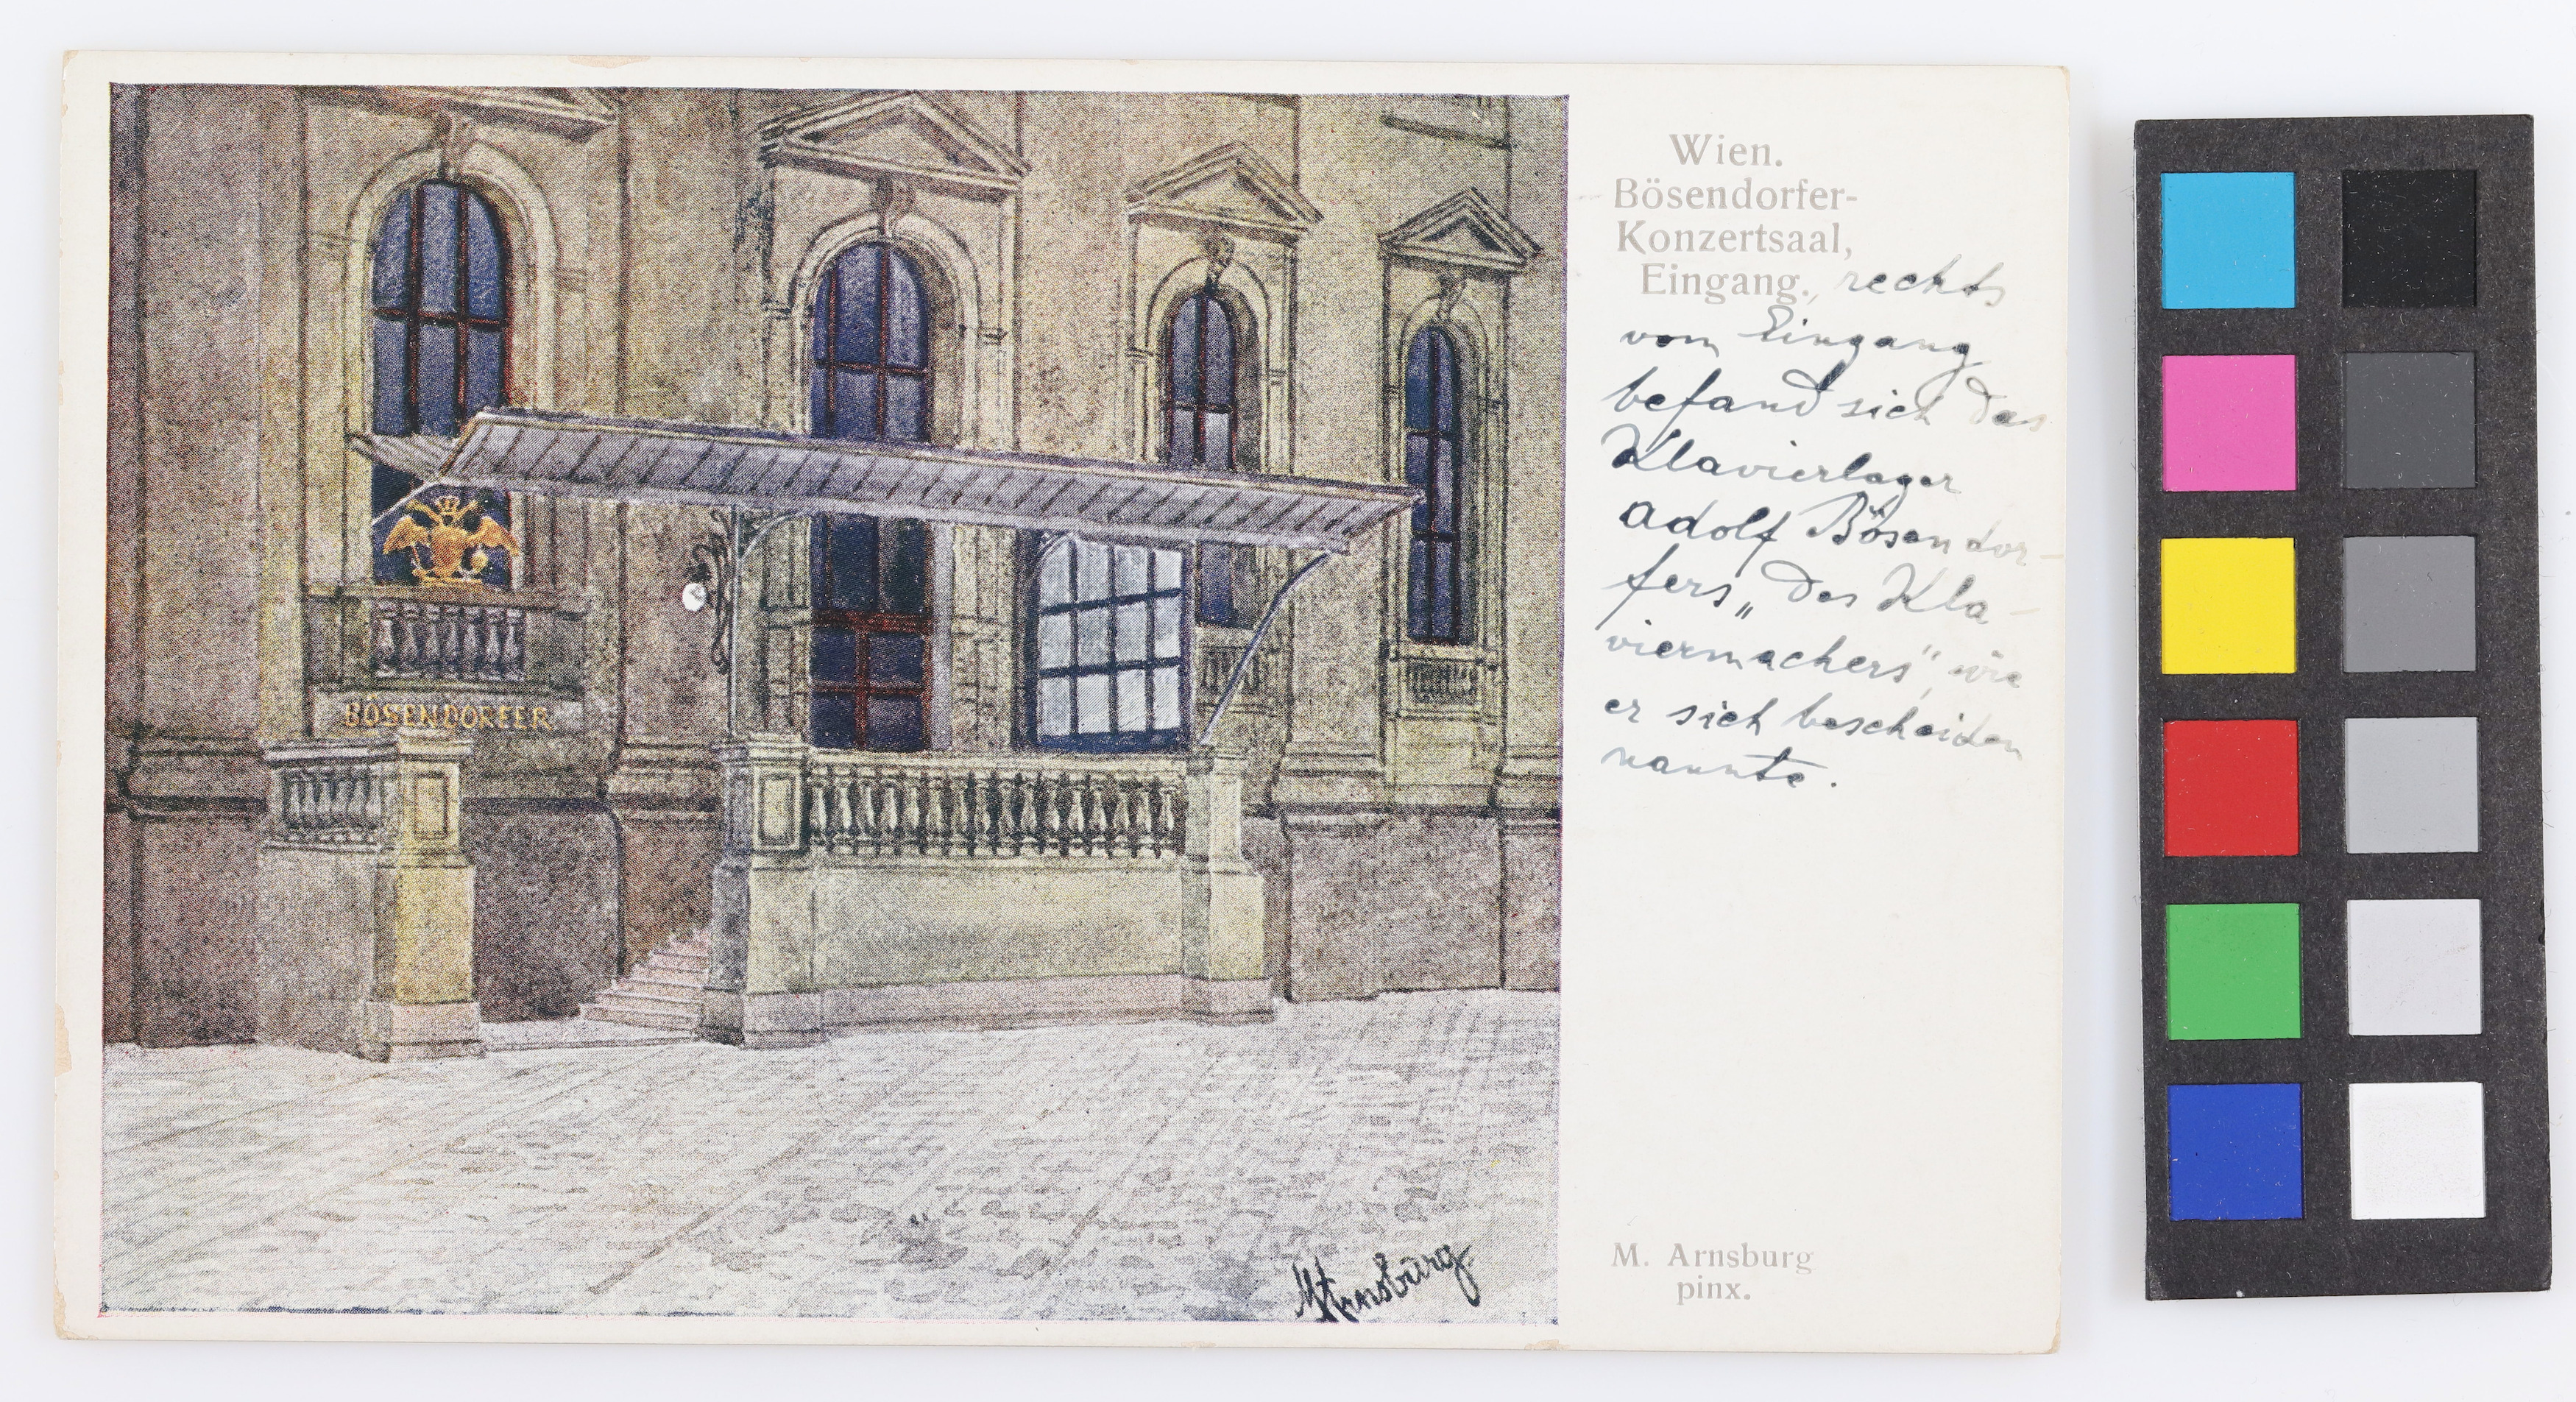 BÖSENDORFER
MArnsburg
Wien.
Bösendorfer-
Konzertsaal,
Eingang., rechts
vom Eingang
befand sich das
Klavierlager
Adolf Bösendor-
fers „des Kla-
viermachers", wie
er sich bescheiden
nannte.
M. Arnsburg
pinx.